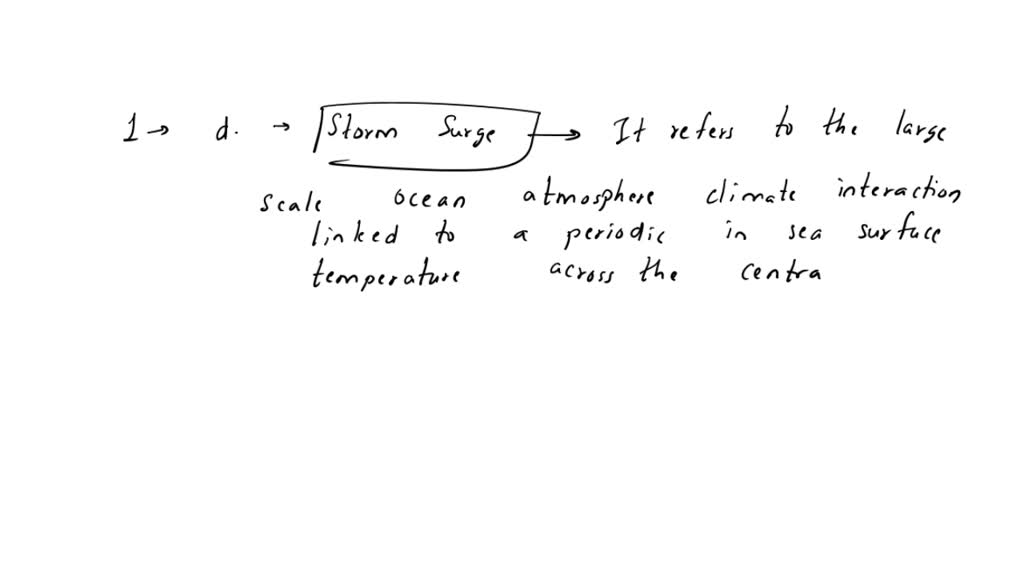 1 → d. → Storm Surge → It refers to the large
scale ocean atmosphere climate interaction
linked to a periodic in sea surface
temperature across the centra